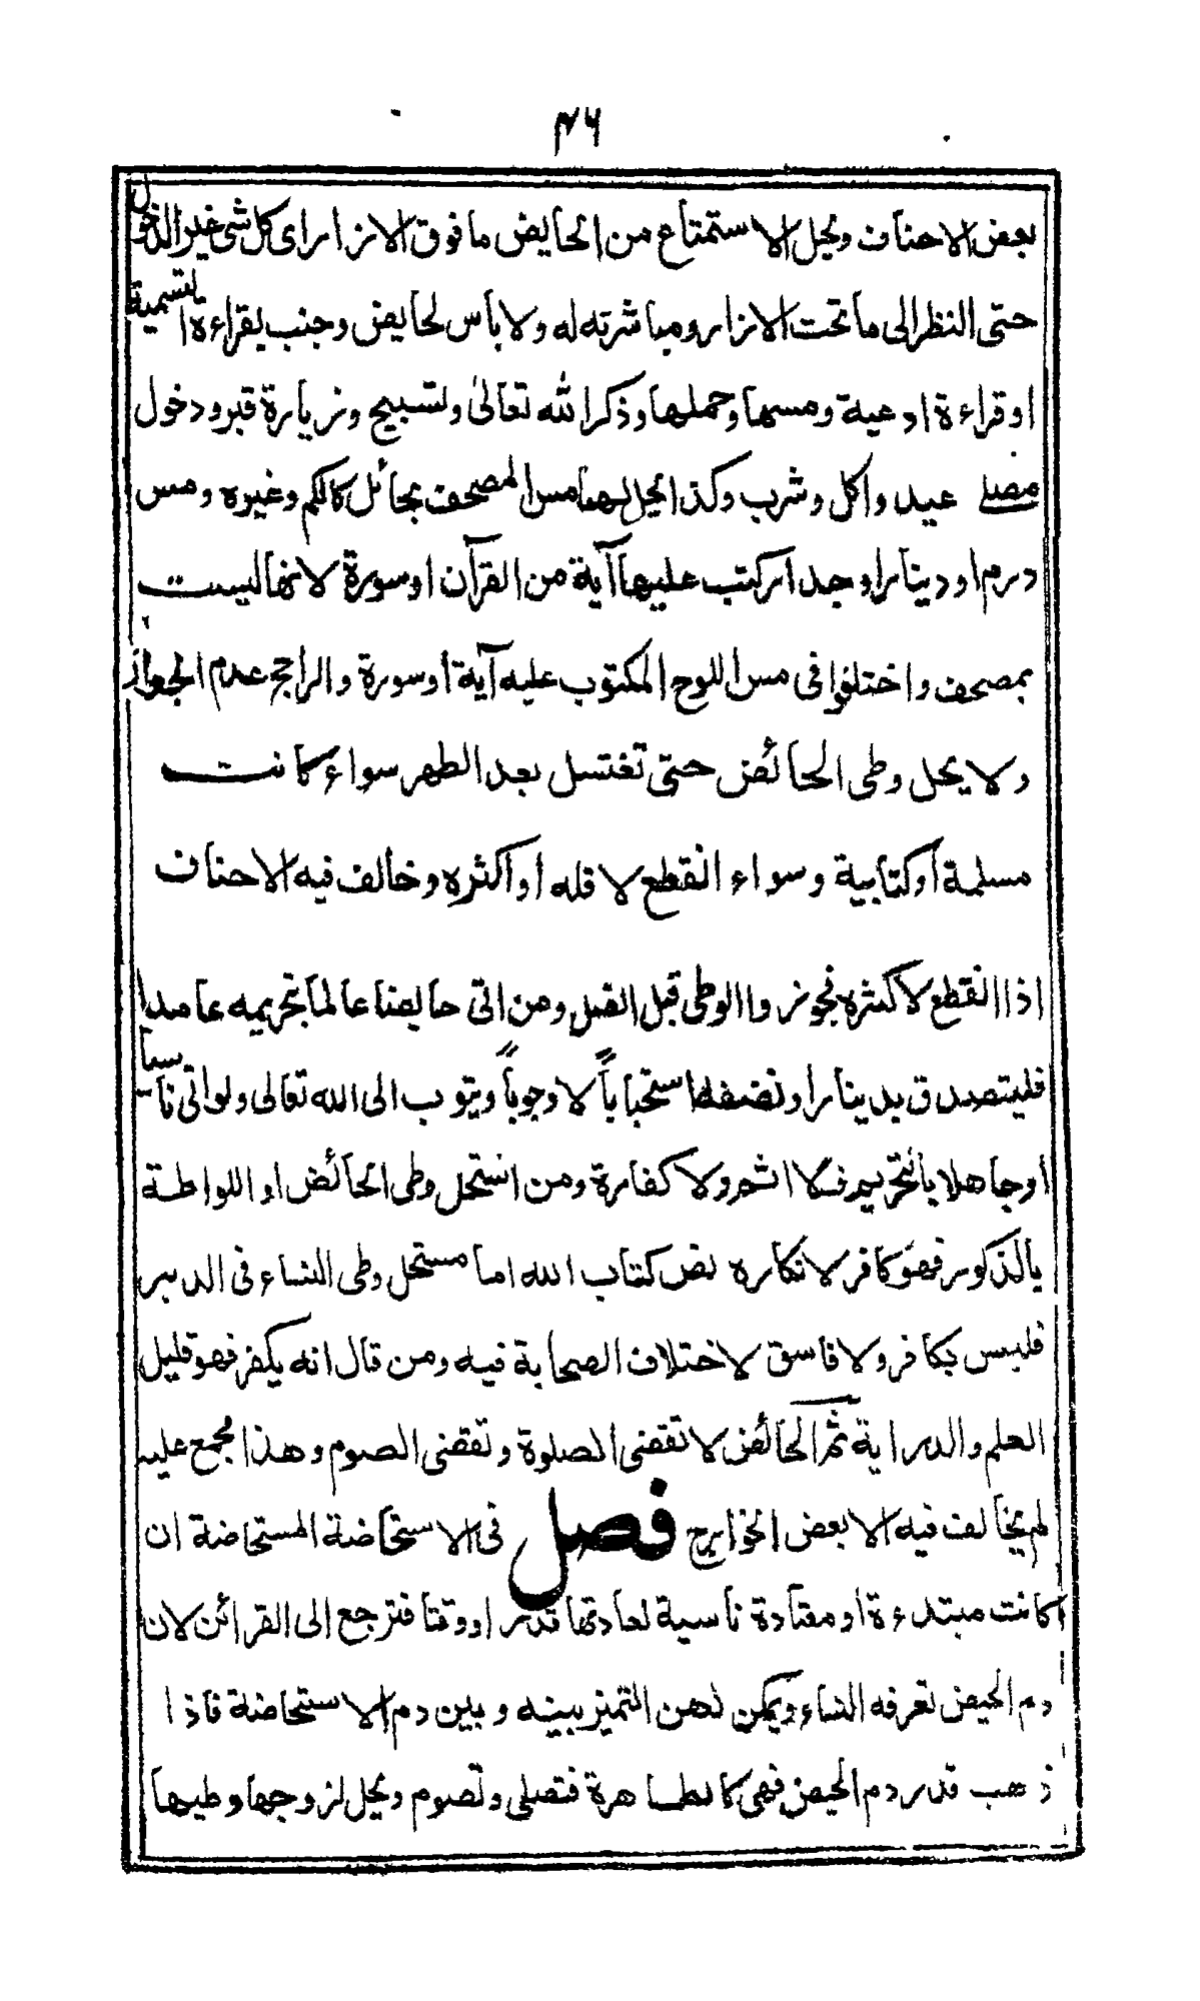 ۴۶
بعض الاحناف ويحل الاستمتاع من الحايض مافوق الازار اى كل شى غير الدخول
حتى النظر الى ما تحت الازار ومباشرته له ولا بأس لحايض وجنب بقراءة التسمية
او قراءة ادعية ومسها وحملها وذكر الله تعالىٰ وتسبيح وزيارة قبر ودخول
مصلے عيد واكل وشرب وكذا يحل لهما مس المصحف بحائل كالكم وغيره ومس
درهم او دينار او جدار كتب عليها آية من القرآن او سورة لانها ليست
بمصحف واختلفوا فى مس اللوح المكتوب عليه آية أو سورة والراجح عدم الجواز
ولا يحل وطى الحائض حتى تغتسل بعد الطهر سواء كانت
مسلمة أو كتابية وسواء انقطع لاقله أو اكثره وخالف فيه الاحناف
اذا انقطع لاكثره فجوزوا الوطى قبل الغسل ومن اتى حايضا عالما بتحريمه عامدا
فليتصدق بدينار او نصفه استحباباً لا وجوباً ويتوب الى الله تعالى ولو اتى ناسيا
أو جاهلا بالتحريم فلا اثم ولا كفارة ومن استحل وطى الحائض او اللواطة
بالذكور فهو كافر لانكاره نص كتاب الله اما مستحل وطى النساء فى الدبر
فليس بكافر ولا فاسق لاختلاف الصحابة فيه ومن قال انه يكفر فهو قليل
العلم والدراية ثم الحائض لا تقضى الصلوة وتقضى الصوم وهذا مجمع عليه
لم يخالف فيه الا بعض الخوارج فصل فى الاستحاضة المستحاضة ان
كانت مبتدءة او معتادة ناسية لعادتها قدر او وقتا فترجع الى القرائن لان
دم الحيض تعرفه النساء ويمكن لهن التميز بينه وبين دم الاستحاضة فاذا
ذهب قدر دم الحيض فهى كالطاهرة فتصلى وتصوم ويحل لزوجها وطيها